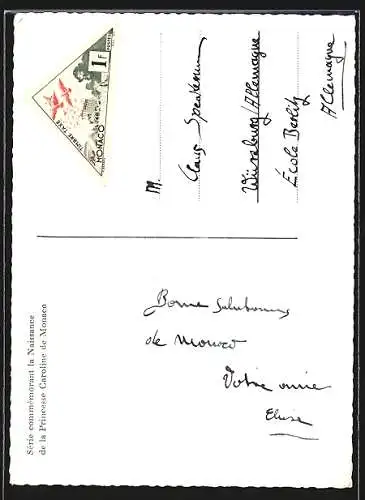 1F
POSTES
TIMBRE TAXE
MONACO
M.
Claus
Würzburg/Allemagne
École Berlitz
Allemagne
Bonnes salutations
de Monaco
Votre amie
Elise
Série commémorant la Naissance
de la Princesse Caroline de Monaco